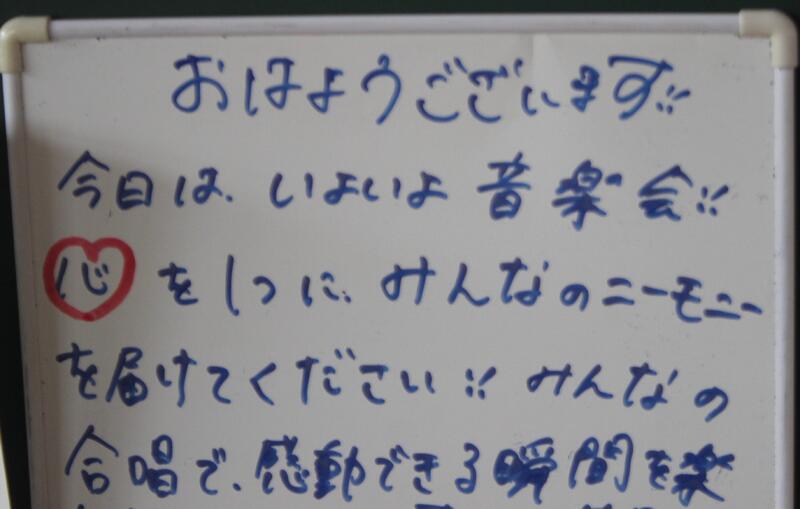 おはようございます!!
今日は、いよいよ音楽会!!
心を1つに、みんなのニーモニー
を届けてください!! みんなの
合唱で、感動できる瞬間を楽